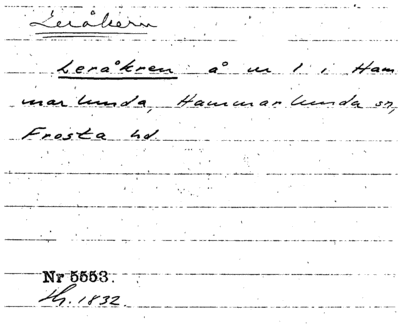 Leråkern
Leråkren å nr 1 i Ham
marlunda, Hammarlunda sn,
Frosta hd.
Nr 5553.
1832.